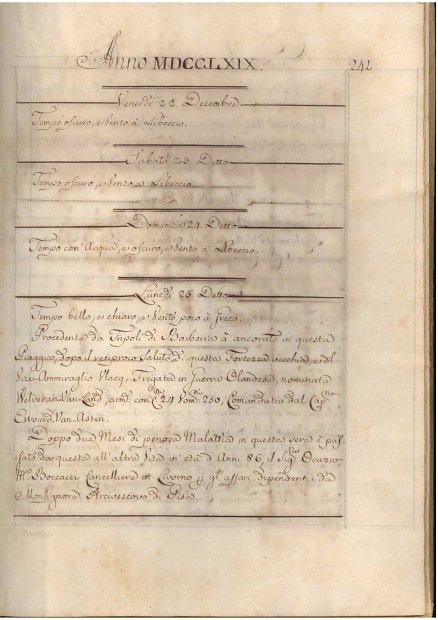 Anno MDCCLXIX.
242
Venerdì 22 Decembre
Tempo oscuro, e Vento à Libeccio.
Sabato 23 Detto
Tempo oscuro, e Vento à Libeccio.
Domenica 24 Detto
Tempo con Acqua, e oscuro, e Vento à Libeccio.
Lunedì 25 Detto
Tempo bello, e chiaro, e Vento poco à Greco.
Procedente da Tripoli di Barberia à ancorato in questa
Piaggia, dopo il reciproco Saluto di questa Fortezza vecchia, e del
Vice-Ammiraglio Vlacq, Fregata in Guerra Olandese, nominata
Welveran-Van-Land, arm: con C. 24 Vom: 250, Comandata dal Cap.
Van-Asten.
Doppo due Mesi di penosa Malattia in questa sera è pas-
sato da questa all' altra Vita in età d' Anni 86, il Sig. Orazio
M. Boccacci Cancelliere in Livorno gl' affari dipendenti da
Monsignore Arcivescovo di Pisa.